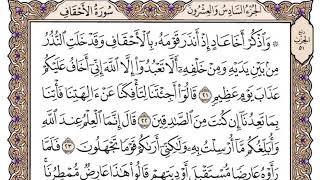 الجزء السادس والعشرون سورة الأحقاف
۞ وَاذْكُرْ أَخَا عَادٍ إِذْ أَنذَرَ قَوْمَهُ بِالْأَحْقَافِ وَقَدْ خَلَتِ النُّذُرُ
مِن بَيْنِ يَدَيْهِ وَمِنْ خَلْفِهِ أَلَّا تَعْبُدُوا إِلَّا اللَّهَ إِنِّي أَخَافُ عَلَيْكُمْ
عَذَابَ يَوْمٍ عَظِيمٍ ٢١ قَالُوا أَجِئْتَنَا لِتَأْفِكَنَا عَنْ آلِهَتِنَا فَأْتِنَا
بِمَا تَعِدُنَا إِن كُنتَ مِنَ الصَّادِقِينَ ٢٢ قَالَ إِنَّمَا الْعِلْمُ عِندَ اللَّهِ
وَأُبَلِّغُكُم مَّا أُرْسِلْتُ بِهِ وَلَٰكِنِّي أَرَاكُمْ قَوْمًا تَجْهَلُونَ ٢٣ فَلَمَّا
رَأَوْهُ عَارِضًا مُّسْتَقْبِلَ أَوْدِيَتِهِمْ قَالُوا هَٰذَا عَارِضٌ مُّمْطِرُنَا
ربع
الحزب
٥١